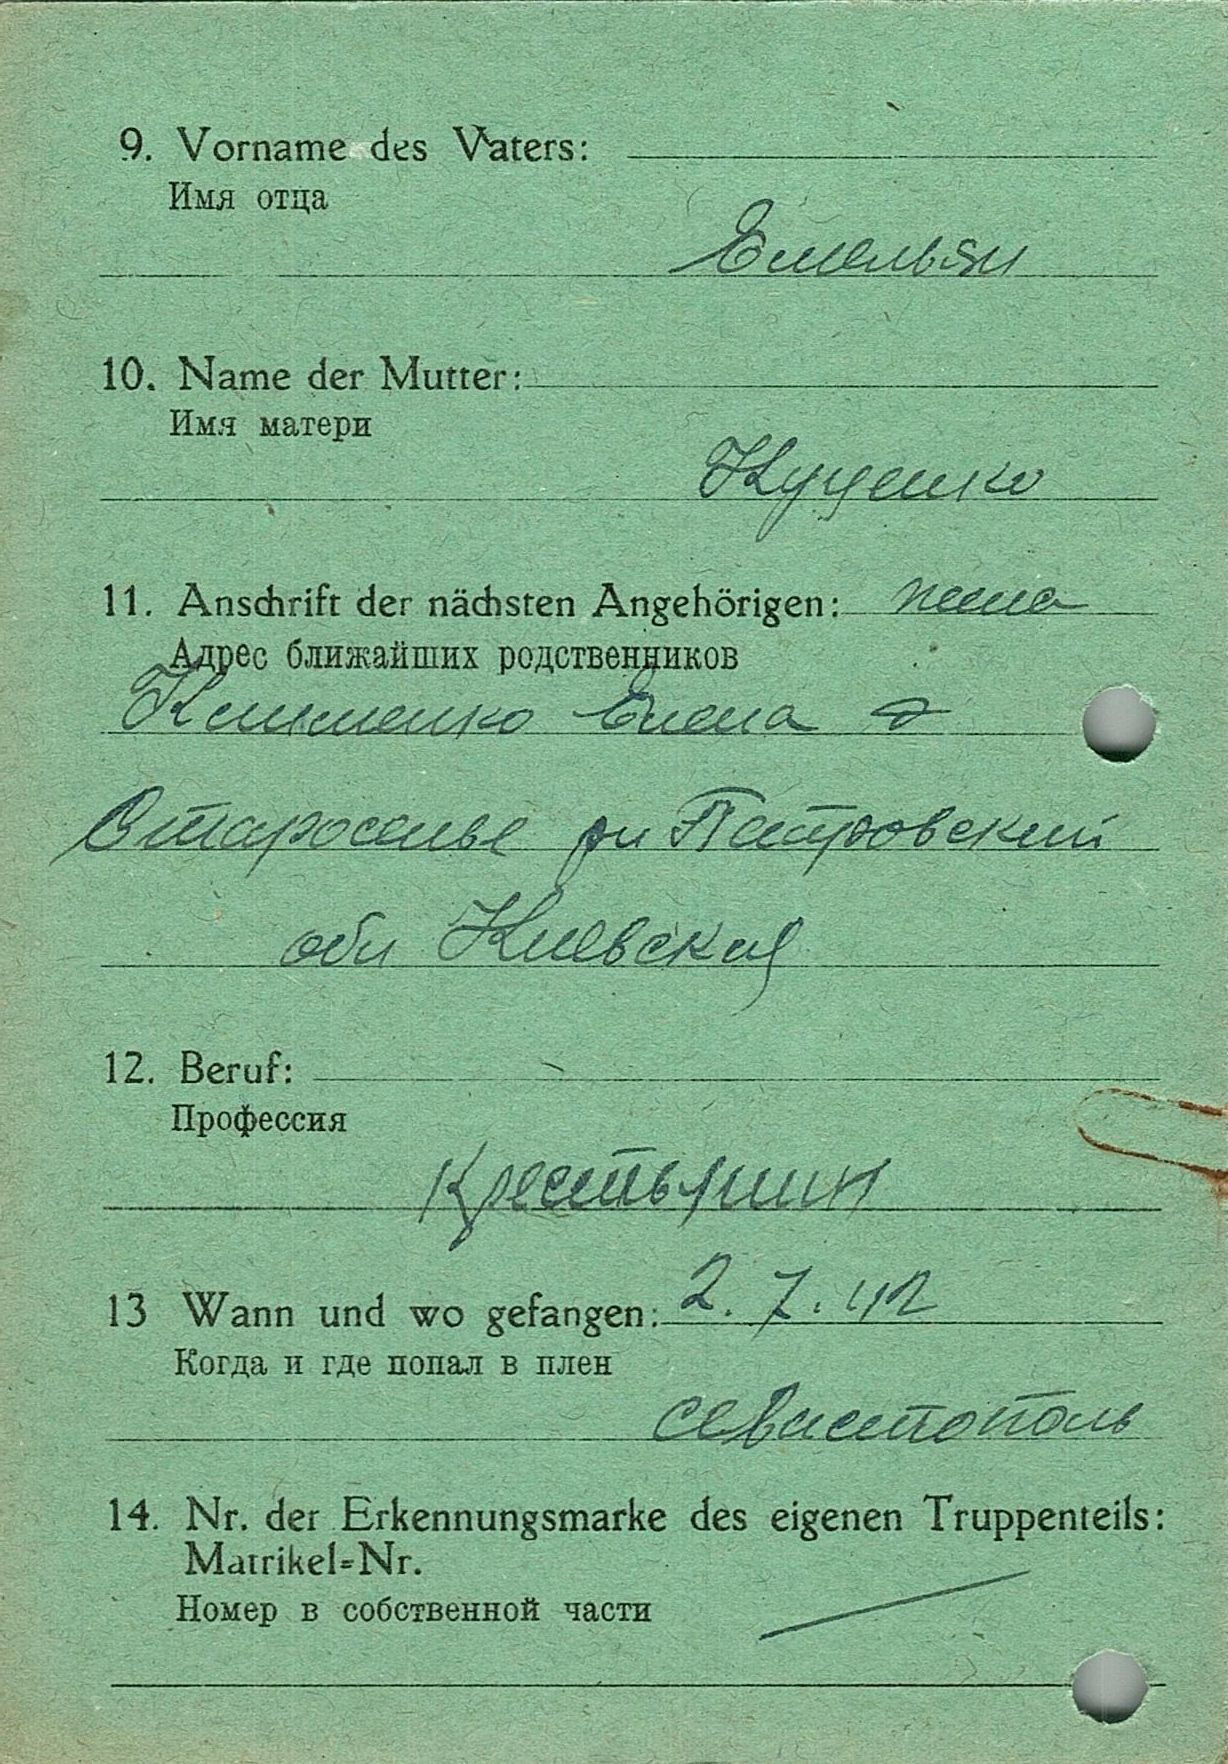 9. Vorname des Vaters:
Имя отца
Емельян
10. Name der Mutter:
Имя матери
Куценко
11. Anschrift der nächsten Angehörigen: жена
Адрес ближайших родственников
Клименко Елена
Староселье рн Петровский
обл Киевская
12. Beruf:
Профессия
Крестьянин
13 Wann und wo gefangen: 2.7.42
Когда и где попал в плен
Севастополь
14. Nr. der Erkennungsmarke des eigenen Truppenteils:
Matrikel=Nr.
Номер в собственной части